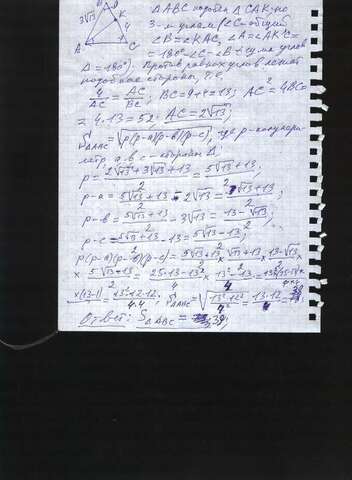 B
3√13
K
4
A
C
ΔABC подобен ΔCAK по
3-м углам (∠C-общий
∠B=∠KAC, ∠A=∠AKC=
=180°-∠C-∠B т.к. сумма углов
Δ=180°). Против равных углов лежат
подобные стороны, т.е.
4/AC = AC/BC; BC=9+4=13; AC²=4BC=
=4·13=52. AC=2√13;
SΔABC=√p(p-a)(p-b)(p-c), где p-полупери-
метр a, b, c - стороны Δ.
p = (2√13+3√13+13)/2 = (5√13+13)/2;
p-a = (5√13+13)/2 - 2√13 = (√13+13)/2;
p-b = (5√13+13)/2 - 3√13 = (13-√13)/2;
p-c = (5√13+13)/2 - 13 = (5√13-13)/2;
p(p-a)(p-b)(p-c) = (5√13+13)/2 × (√13+13)/2 × (13-√13)/2 ×
× (5√13-13)/2 = (25·13-13²)/4 × (13²-13)/4 = 13²(25-13)×
×(13-1)/4·4 = 13²·12·12/4·4; SΔABC = √13²·12²/4² = 13·12/4 = 39
Ответ: SΔABC = 39;